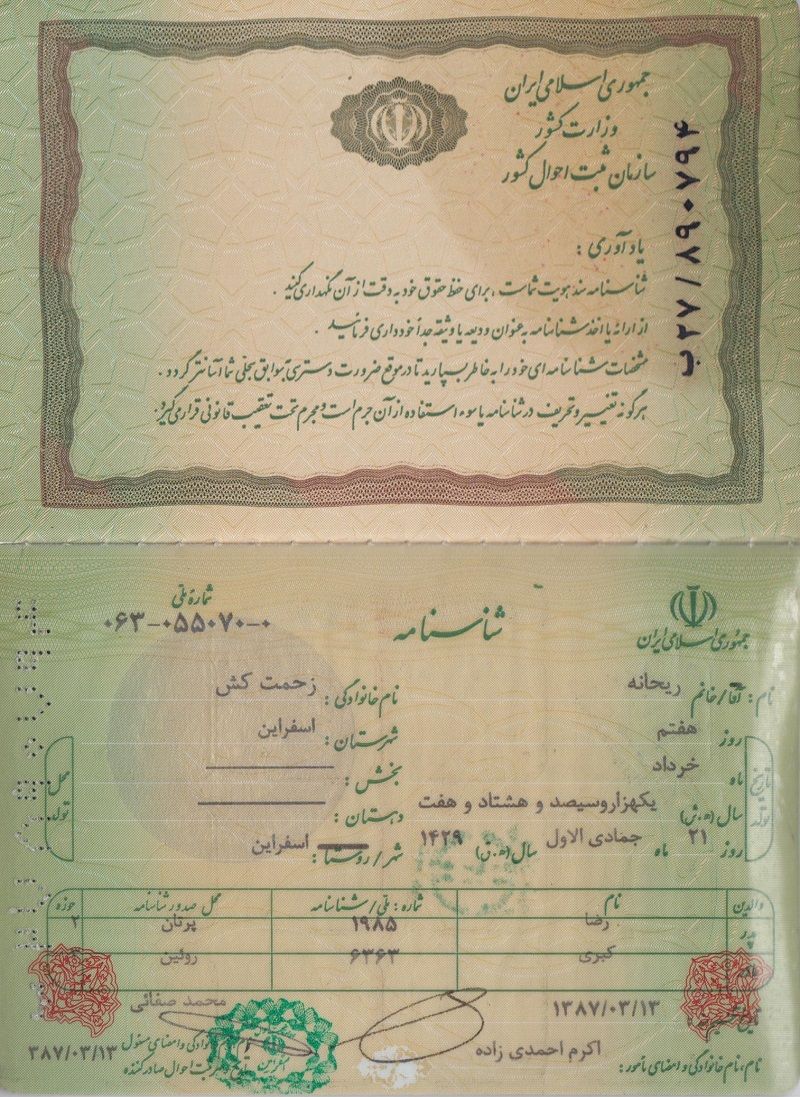 جمهوری اسلامی ایران
وزارت کشور
سازمان ثبت احوال کشور
ب۲۷ / ۸۹۰۷۹۴
یادآوری :
شناسنامه سند هویت شماست ، برای حفظ حقوق خود به دقت از آن نگهداری کنید .
از ارائه یا اخذ شناسنامه به عنوان ودیعه یا وثیقه جداً خودداری فرمائید .
مشخصات شناسنامه ای خود را به خاطر بسپارید تا در موقع ضرورت دسترسی به سوابق سجلی شما آسانتر گردد .
هرگونه تغییر و تحریف در شناسنامه یا سوء استفاده از آن جرم است و مجرم تحت تعقیب قانونی قرار می گیرد.
جمهوری اسلامی ایران
شناسنامه
شماره ملی
۰۶۳-۰۵۵۰۷۰-۰
نام : آقا/خانم ریحانه
نام خانوادگی : زحمت کش
تاریخ تولد
روز هفتم
ماه خرداد
سال (ه.ش) یکهزاروسیصد و هشتاد و هفت
روز ۲۱ ماه جمادی الاول سال (ه.ق) ۱۴۲۹
محل تولد
شهرستان : اسفراین
بخش :
دهستان :
شهر/روستا : اسفراین
والدین نام شماره : ملی/شناسنامه محل صدور شناسنامه حوزه
پدر رضا ۱۹۸۵ پرتان ۲
مادر کبری ۶۳۶۳ روئین
۱۳۸۷/۰۳/۱۳
محمد صفائی
نام، نام خانوادگی و امضای مأمور : اکرم احمدی زاده
نام خانوادگی و امضای مسئول
۳۸۷/۰۳/۱۳